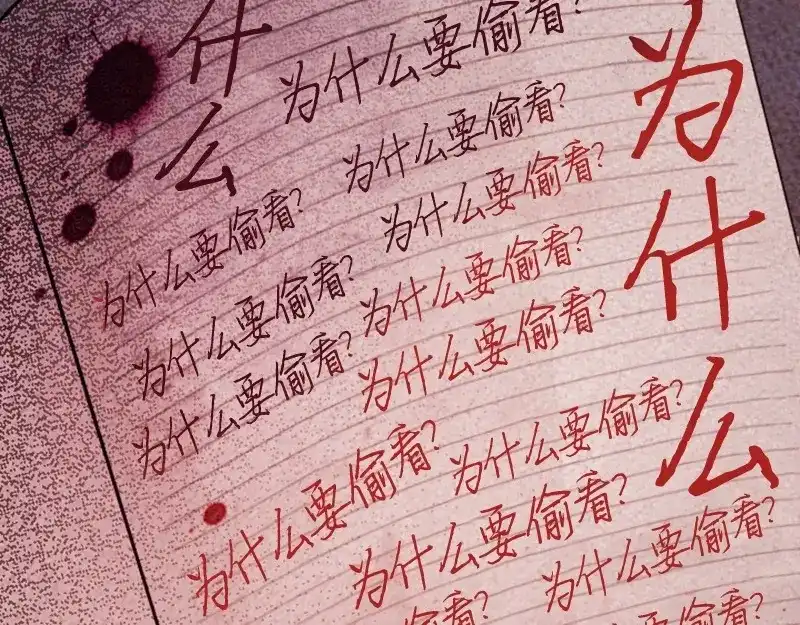 什么
为什么要偷看?
为什么要偷看?
为什么要偷看?
为什么要偷看?
为什么要偷看?
为什么要偷看?
为什么要偷看?
为什么要偷看?
为什么要偷看?
为什么要偷看?
为什么要偷看?
为什么要偷看?
为什么要偷看?
偷看?
要偷看?
为什么